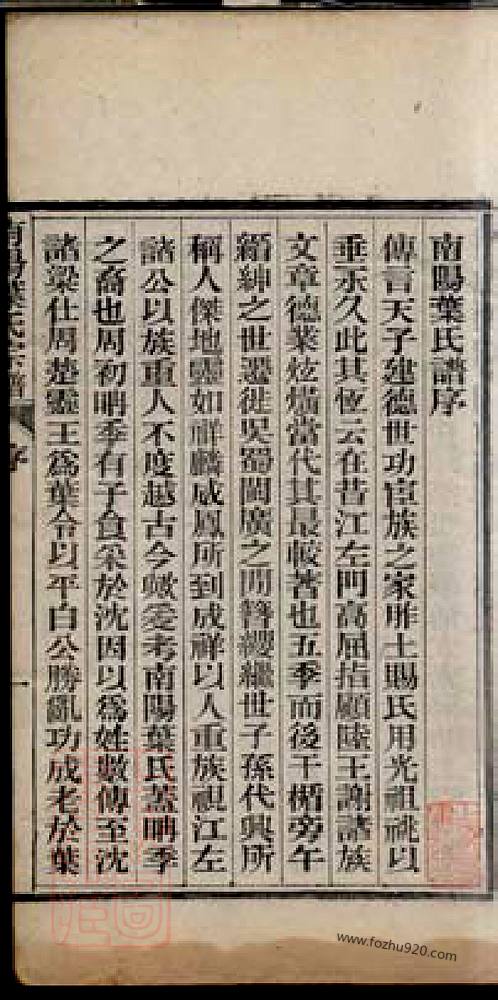 南陽葉氏譜序
傳言天子建德世功宦族之家胙土賜氏用光祖祧以
垂示久此其恆云在昔江左門高屈指顧陸王謝諸族
文章德業炫熿當代其最較著也五季而後干楯旁午
縉紳之世遷徙吳蜀閩廣之閒簪纓繼世子孫代興所
稱人傑地靈如祥麟威鳳所到成祥以人重族視江左
諸公以族重人不度越古今歟爰考南陽葉氏蓋聃季
之裔也周初聃季有子食采於沈因以為姓數傳至沈
諸梁仕周楚靈王為葉令以平白公勝亂功成老於葉
南陽葉氏宗譜
序
一
www.fozhu920.com